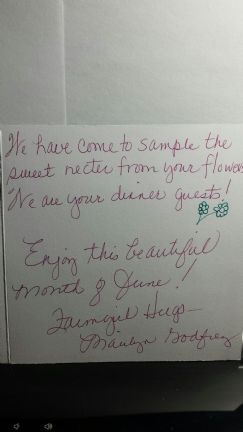 We have come to sample the
sweet necter from your flowers
We are your dinner guests!
Enjoy this beautiful
month of June!
Farmgirl Hugs-
Marilyn Godfrey